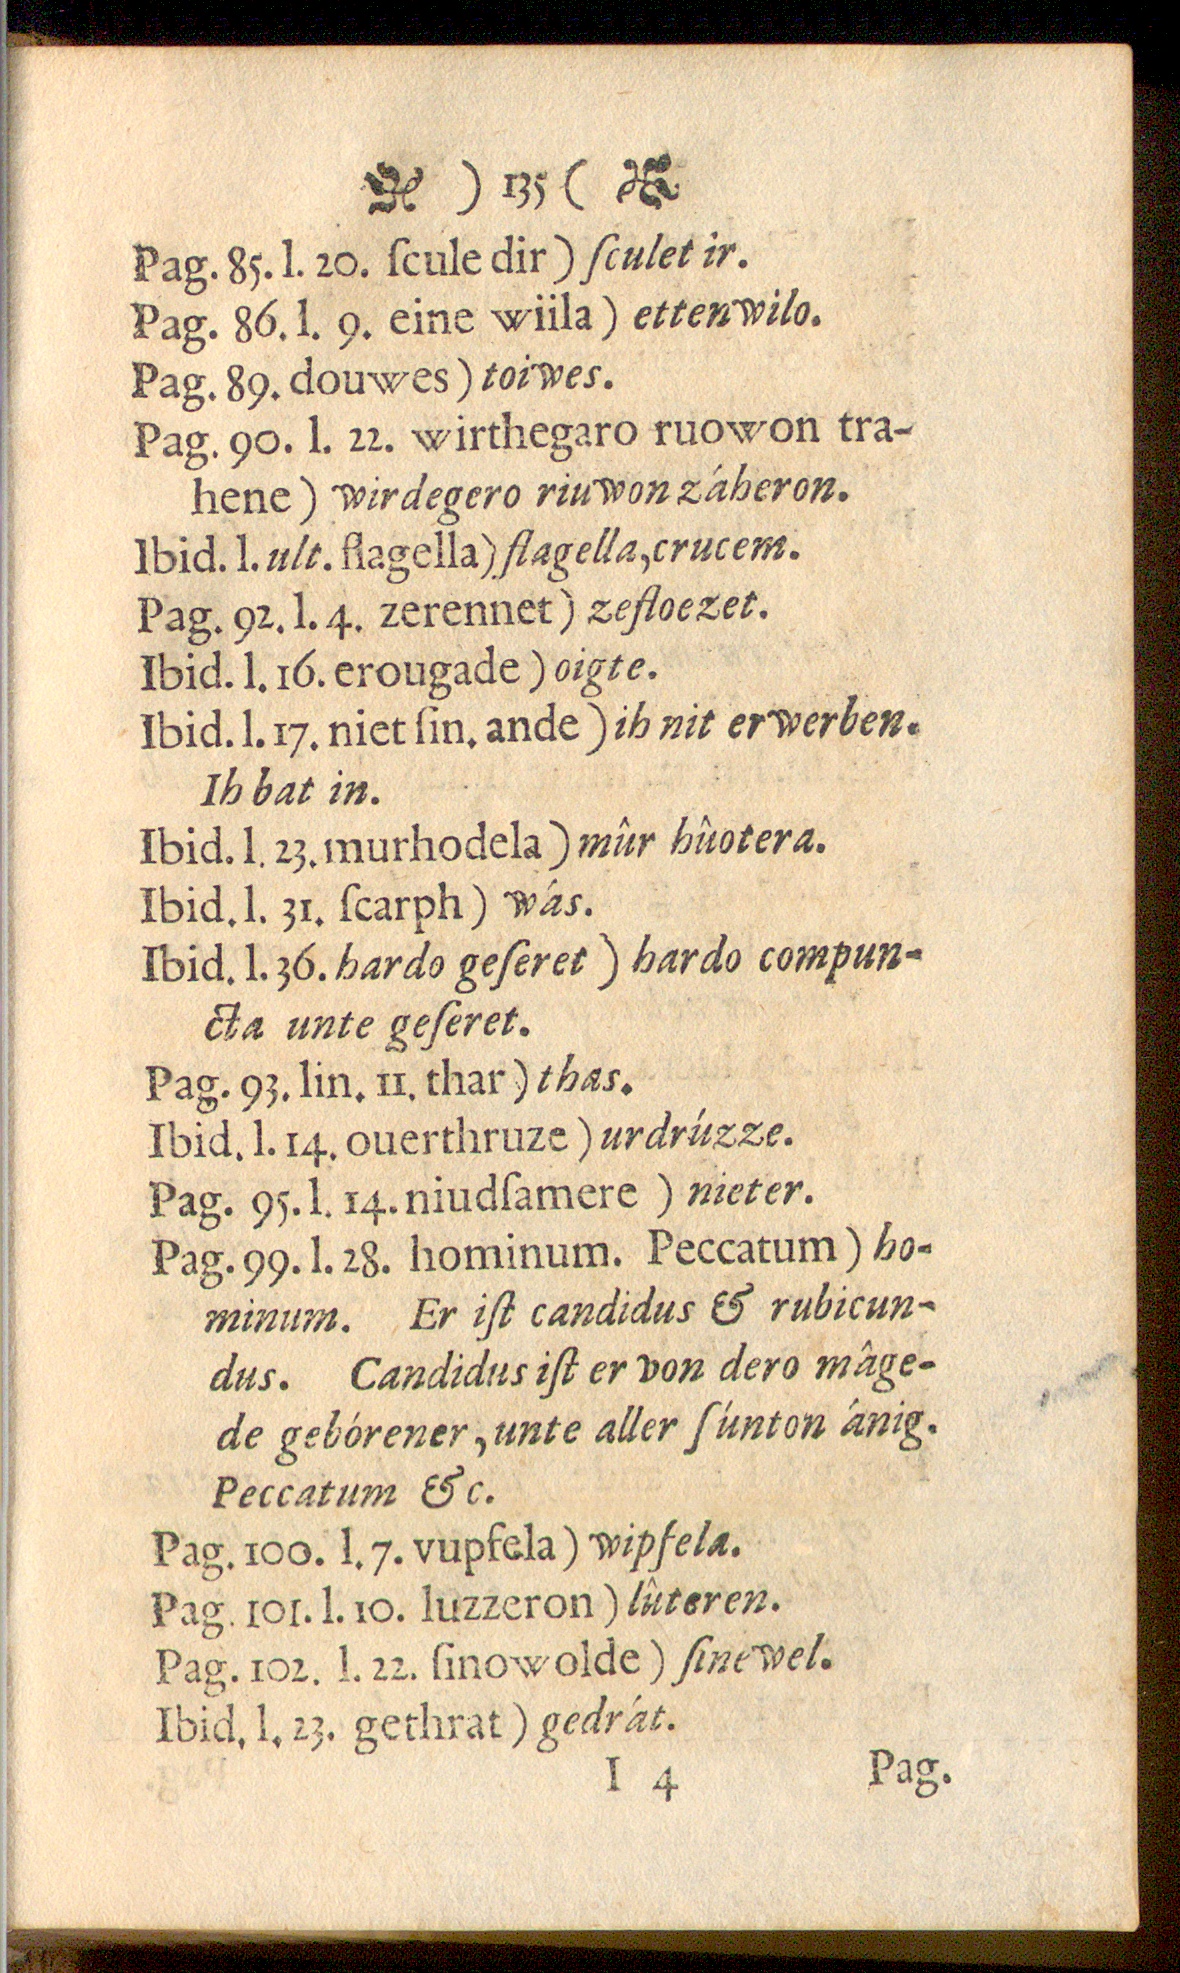 ) 135 (
Pag. 85. l. 20. ſcule dir ) ſculet ir.
Pag. 86. l. 9. eine wiila ) ettenwilo.
Pag. 89. douwes ) toiwes.
Pag. 90. l. 22. wirthegaro ruowon tra-
hene ) wirdegero riuwon záheron.
Ibid. l. ult. flagella) flagella, crucem.
Pag. 92. l. 4. zerennet ) zefloezet.
Ibid. l. 16. erougade ) oigte.
Ibid. l. 17. niet ſin. ande ) ih nit erwerben.
Ih bat in.
Ibid. l. 23. murhodela ) mûr hûotera.
Ibid. l. 31. ſcarph ) wás.
Ibid. l. 36. hardo geſeret ) hardo compun-
cta unte geſeret.
Pag. 93. lin. 11. thar ) thas.
Ibid. l. 14. ouerthruze ) urdrúzze.
Pag. 95. l. 14. niudſamere ) nieter.
Pag. 99. l. 28. hominum. Peccatum ) ho-
minum. Er iſt candidus & rubicun-
dus. Candidus iſt er von dero mâge-
de gebórener, unte aller ſúnton ánig.
Peccatum &c.
Pag. 100. l. 7. vupfela ) wipfela.
Pag. 101. l. 10. luzzeron ) lûteren.
Pag. 102. l. 22. ſinowolde ) ſinewel.
Ibid. l. 23. gethrat ) gedrát.
I 4 Pag.